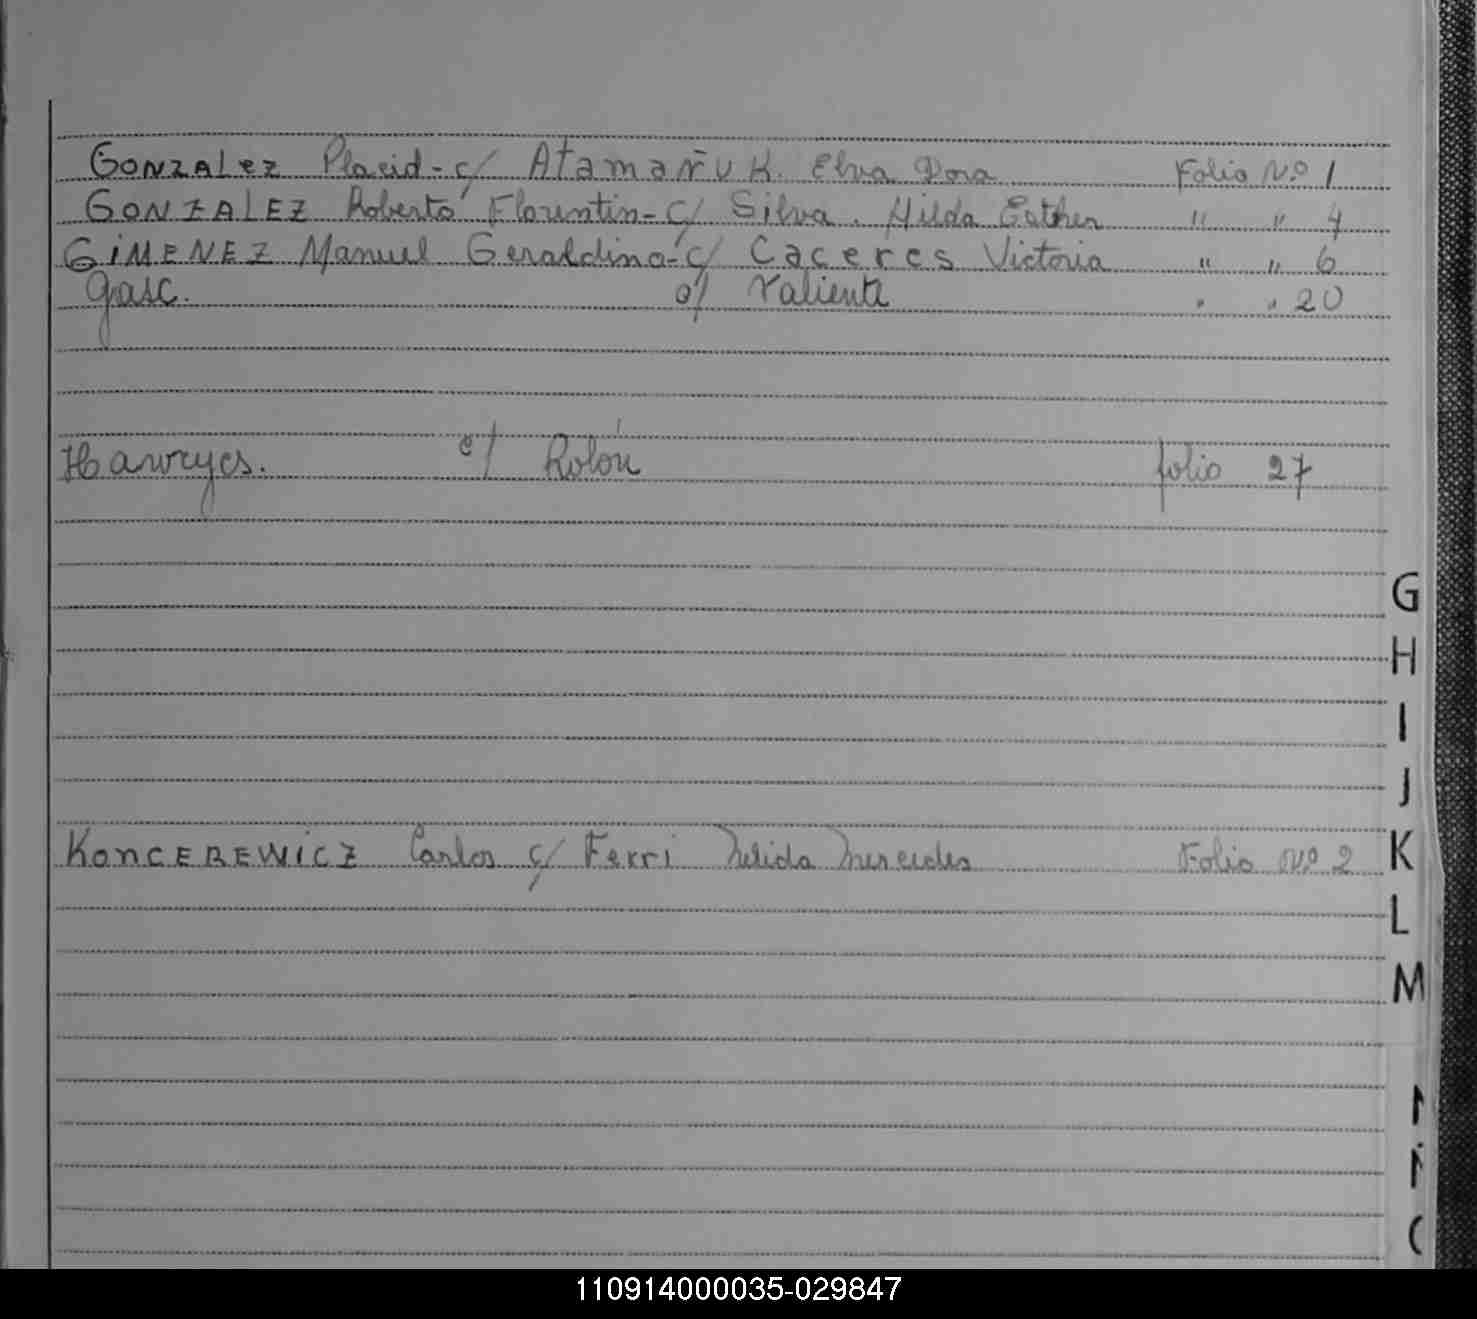 GONZALEZ Placid - c/ Atamañuk. Elva Dora Folio Nº 1
GONZALEZ Roberto Florentin - c/ Silva. Hilda Esther " " 4
GIMENEZ Manuel Geraldino - c/ Caceres Victoria " " 6
Gasc. c/ Valiente " " 20
Hawryes. c/ Rolón folio 27
G
H
I
J
KONCEREWICZ Carlos c/ Ferri Nelida Mercedes Folio Nº 2
K
L
M
110914000035-029847